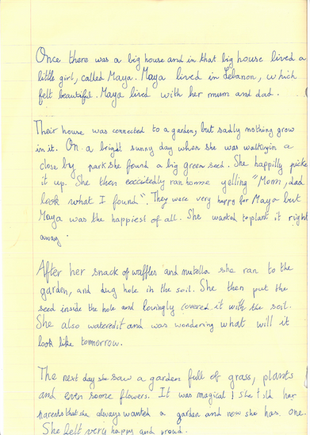 Once there was a big house and in that big house lived a
little girl, called Maya. Maya lived in Lebanon, which
felt beautiful. Maya lived with her mum and dad.
Their house was connected to a garden, but sadly nothing grow
in it. On a bright sunny day when she was walkingin a
close by park she found a big green seed. She happilly picke
it up. She then excitedly ran home yelling "Mom, dad
look what I found". They were very happy for Maya but
Maya was the happiest of all. She wanted to plant it right
away.
After her snack of waffles and nutella she ran to the
garden, and dug hole in the soil. She then put the
seed inside the hole and lovingly covered it with the soil.
She also watered it and was wondering what will it
look like tomorrow.
The next day she saw a garden full of grass, plants
and even some flowers. It was magical! She told her
parents that she always wanted a garden and now she has one.
She felt very happy and proud.